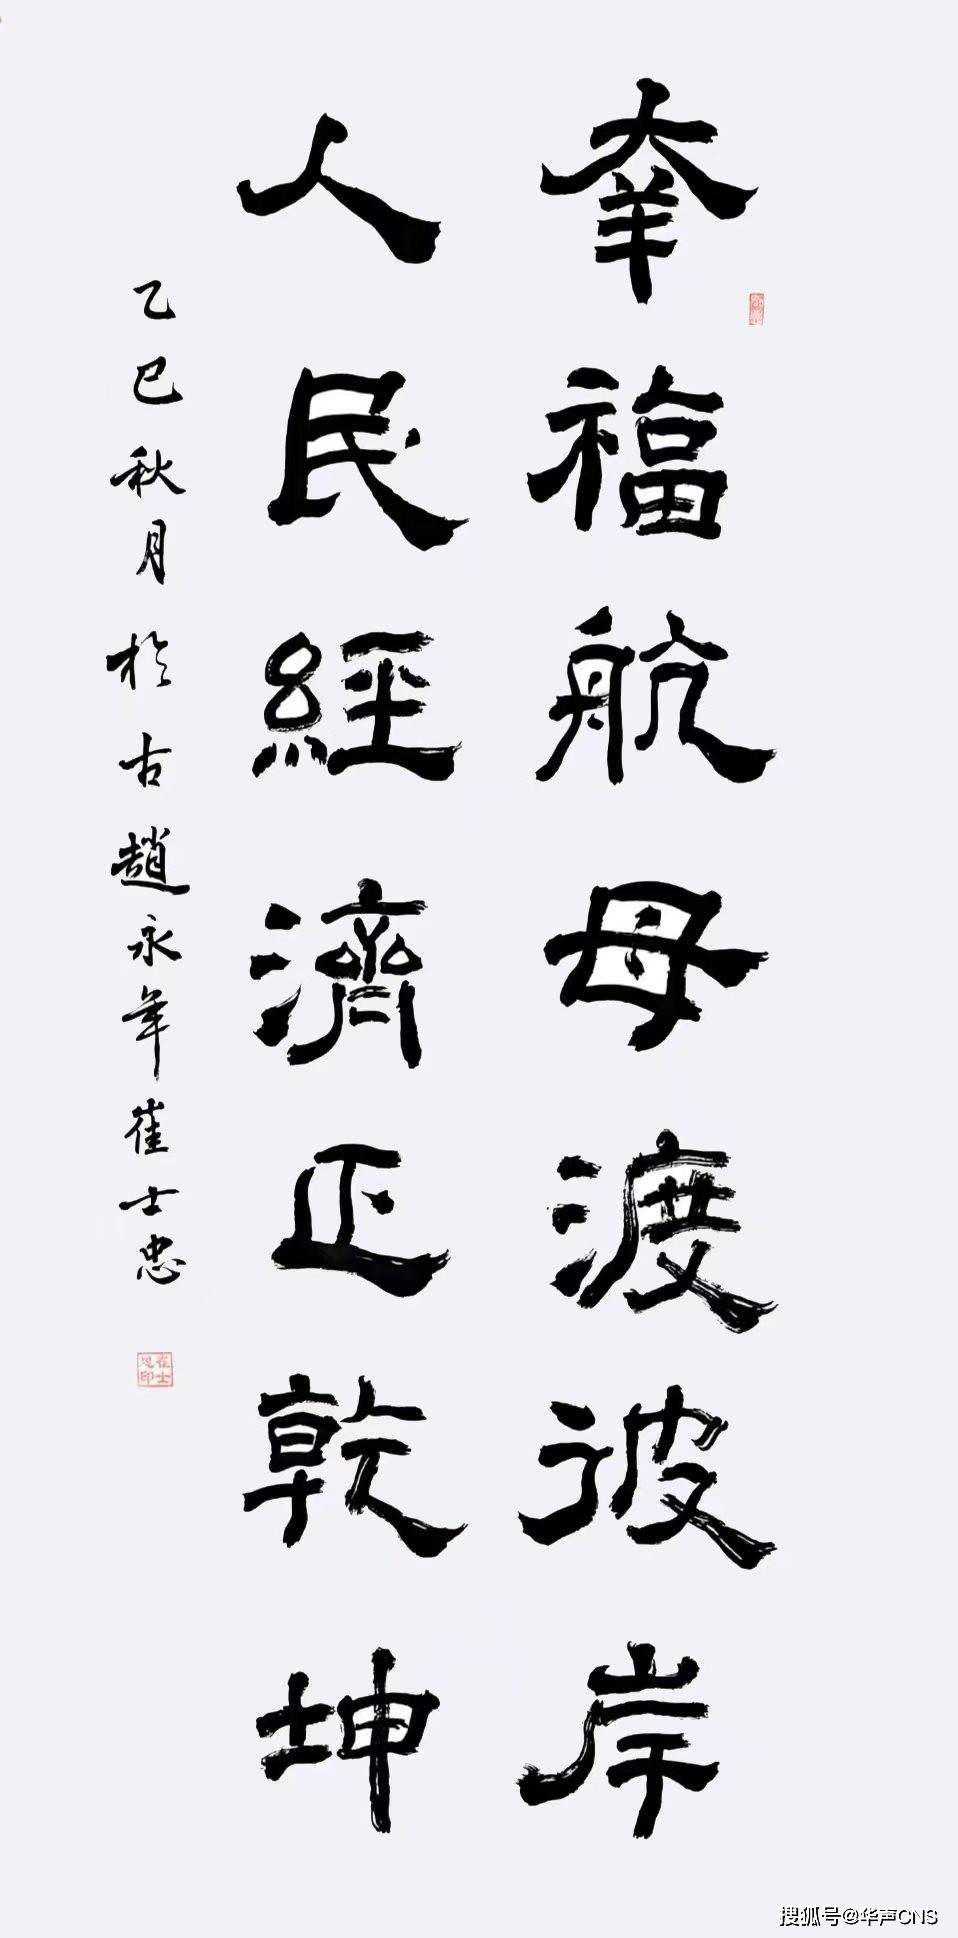 幸福航母渡彼岸
人民經濟正乾坤
乙巳秋月於古趙永年崔士忠
搜狐号@华声CNS